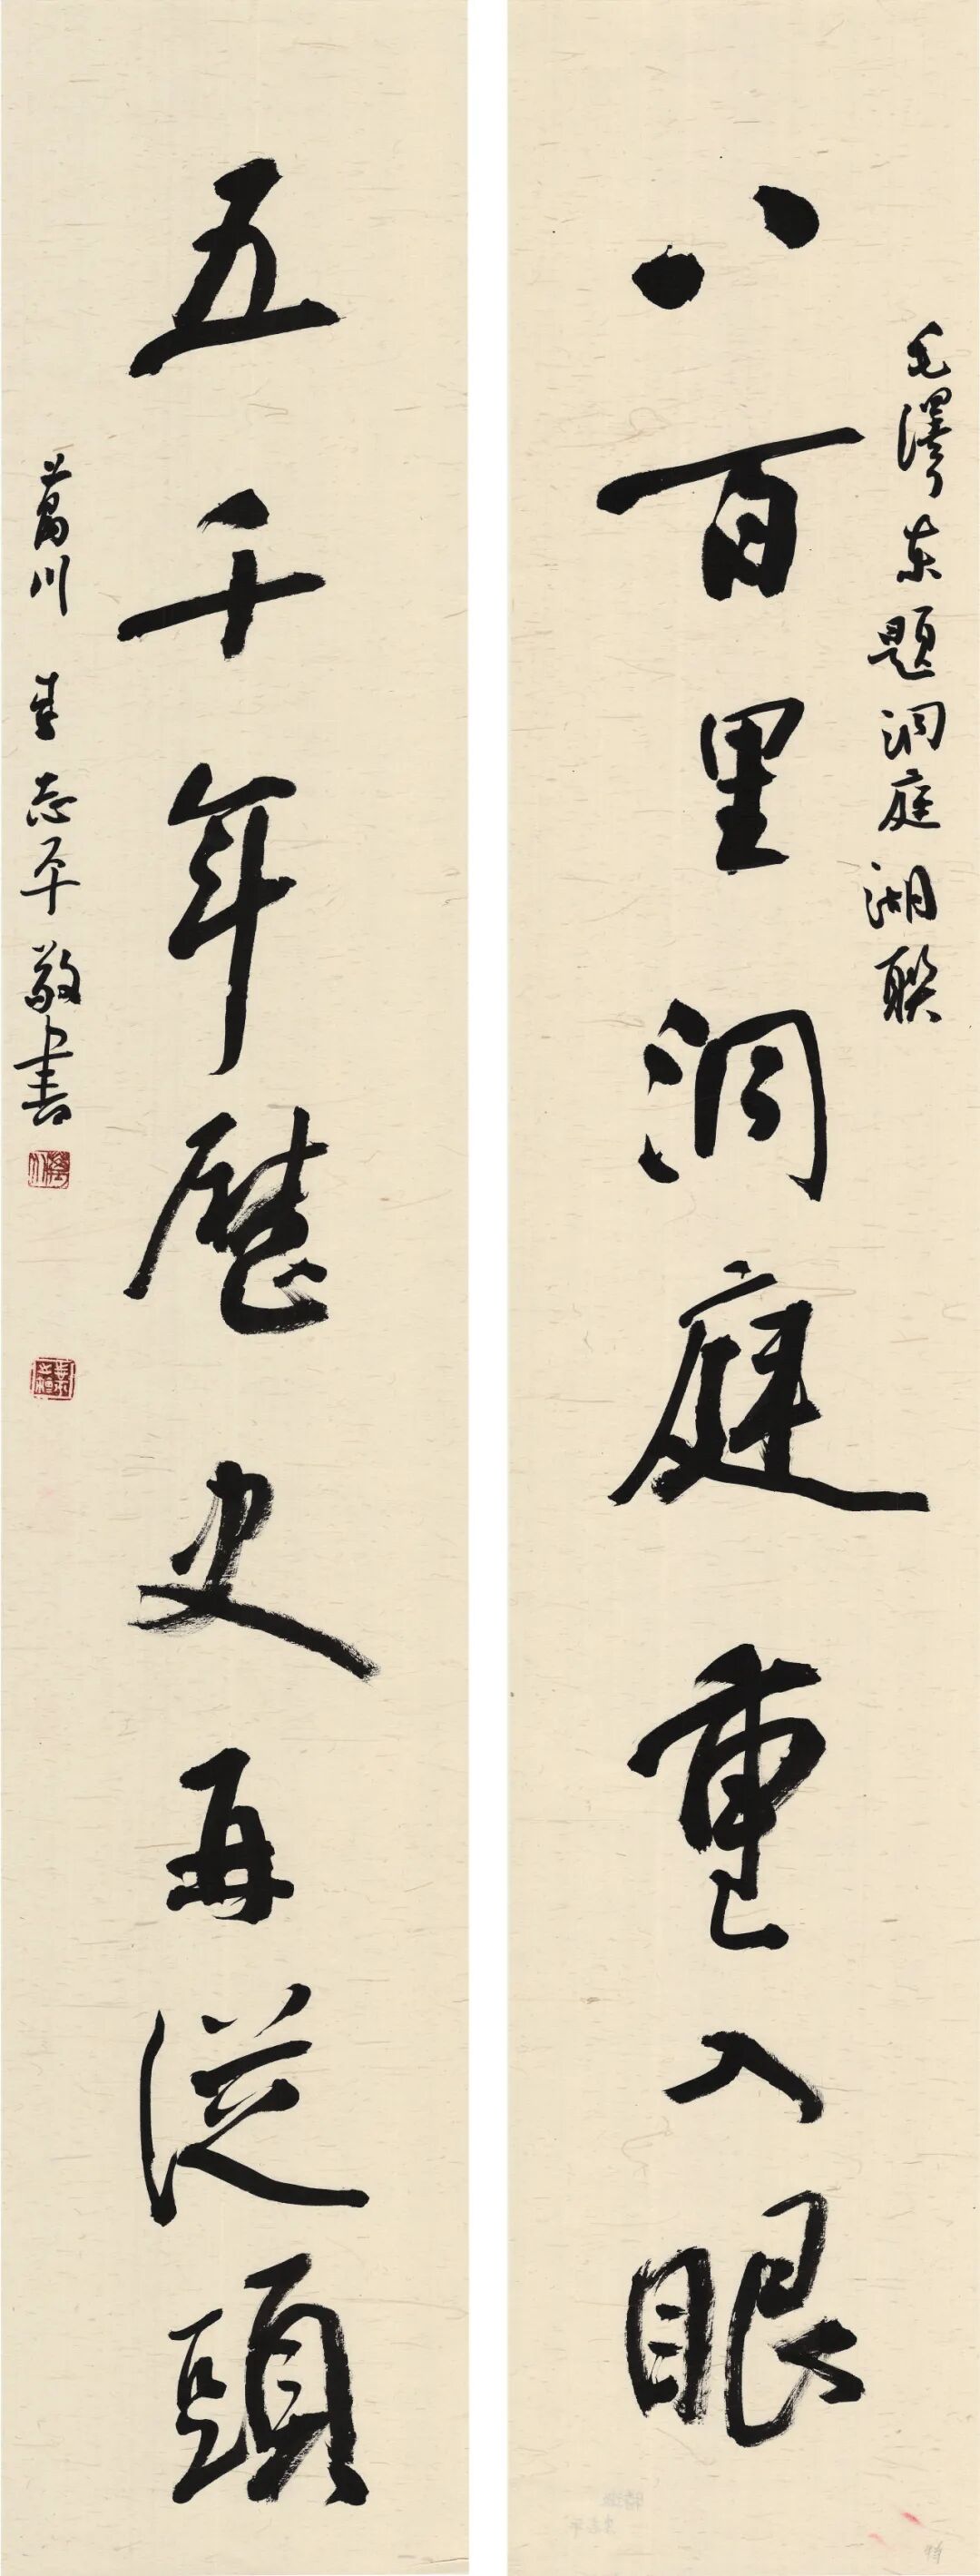 毛澤东題洞庭湖聯
八百里洞庭重入眼
五千年歷史再從頭
萬川 李志平敬書